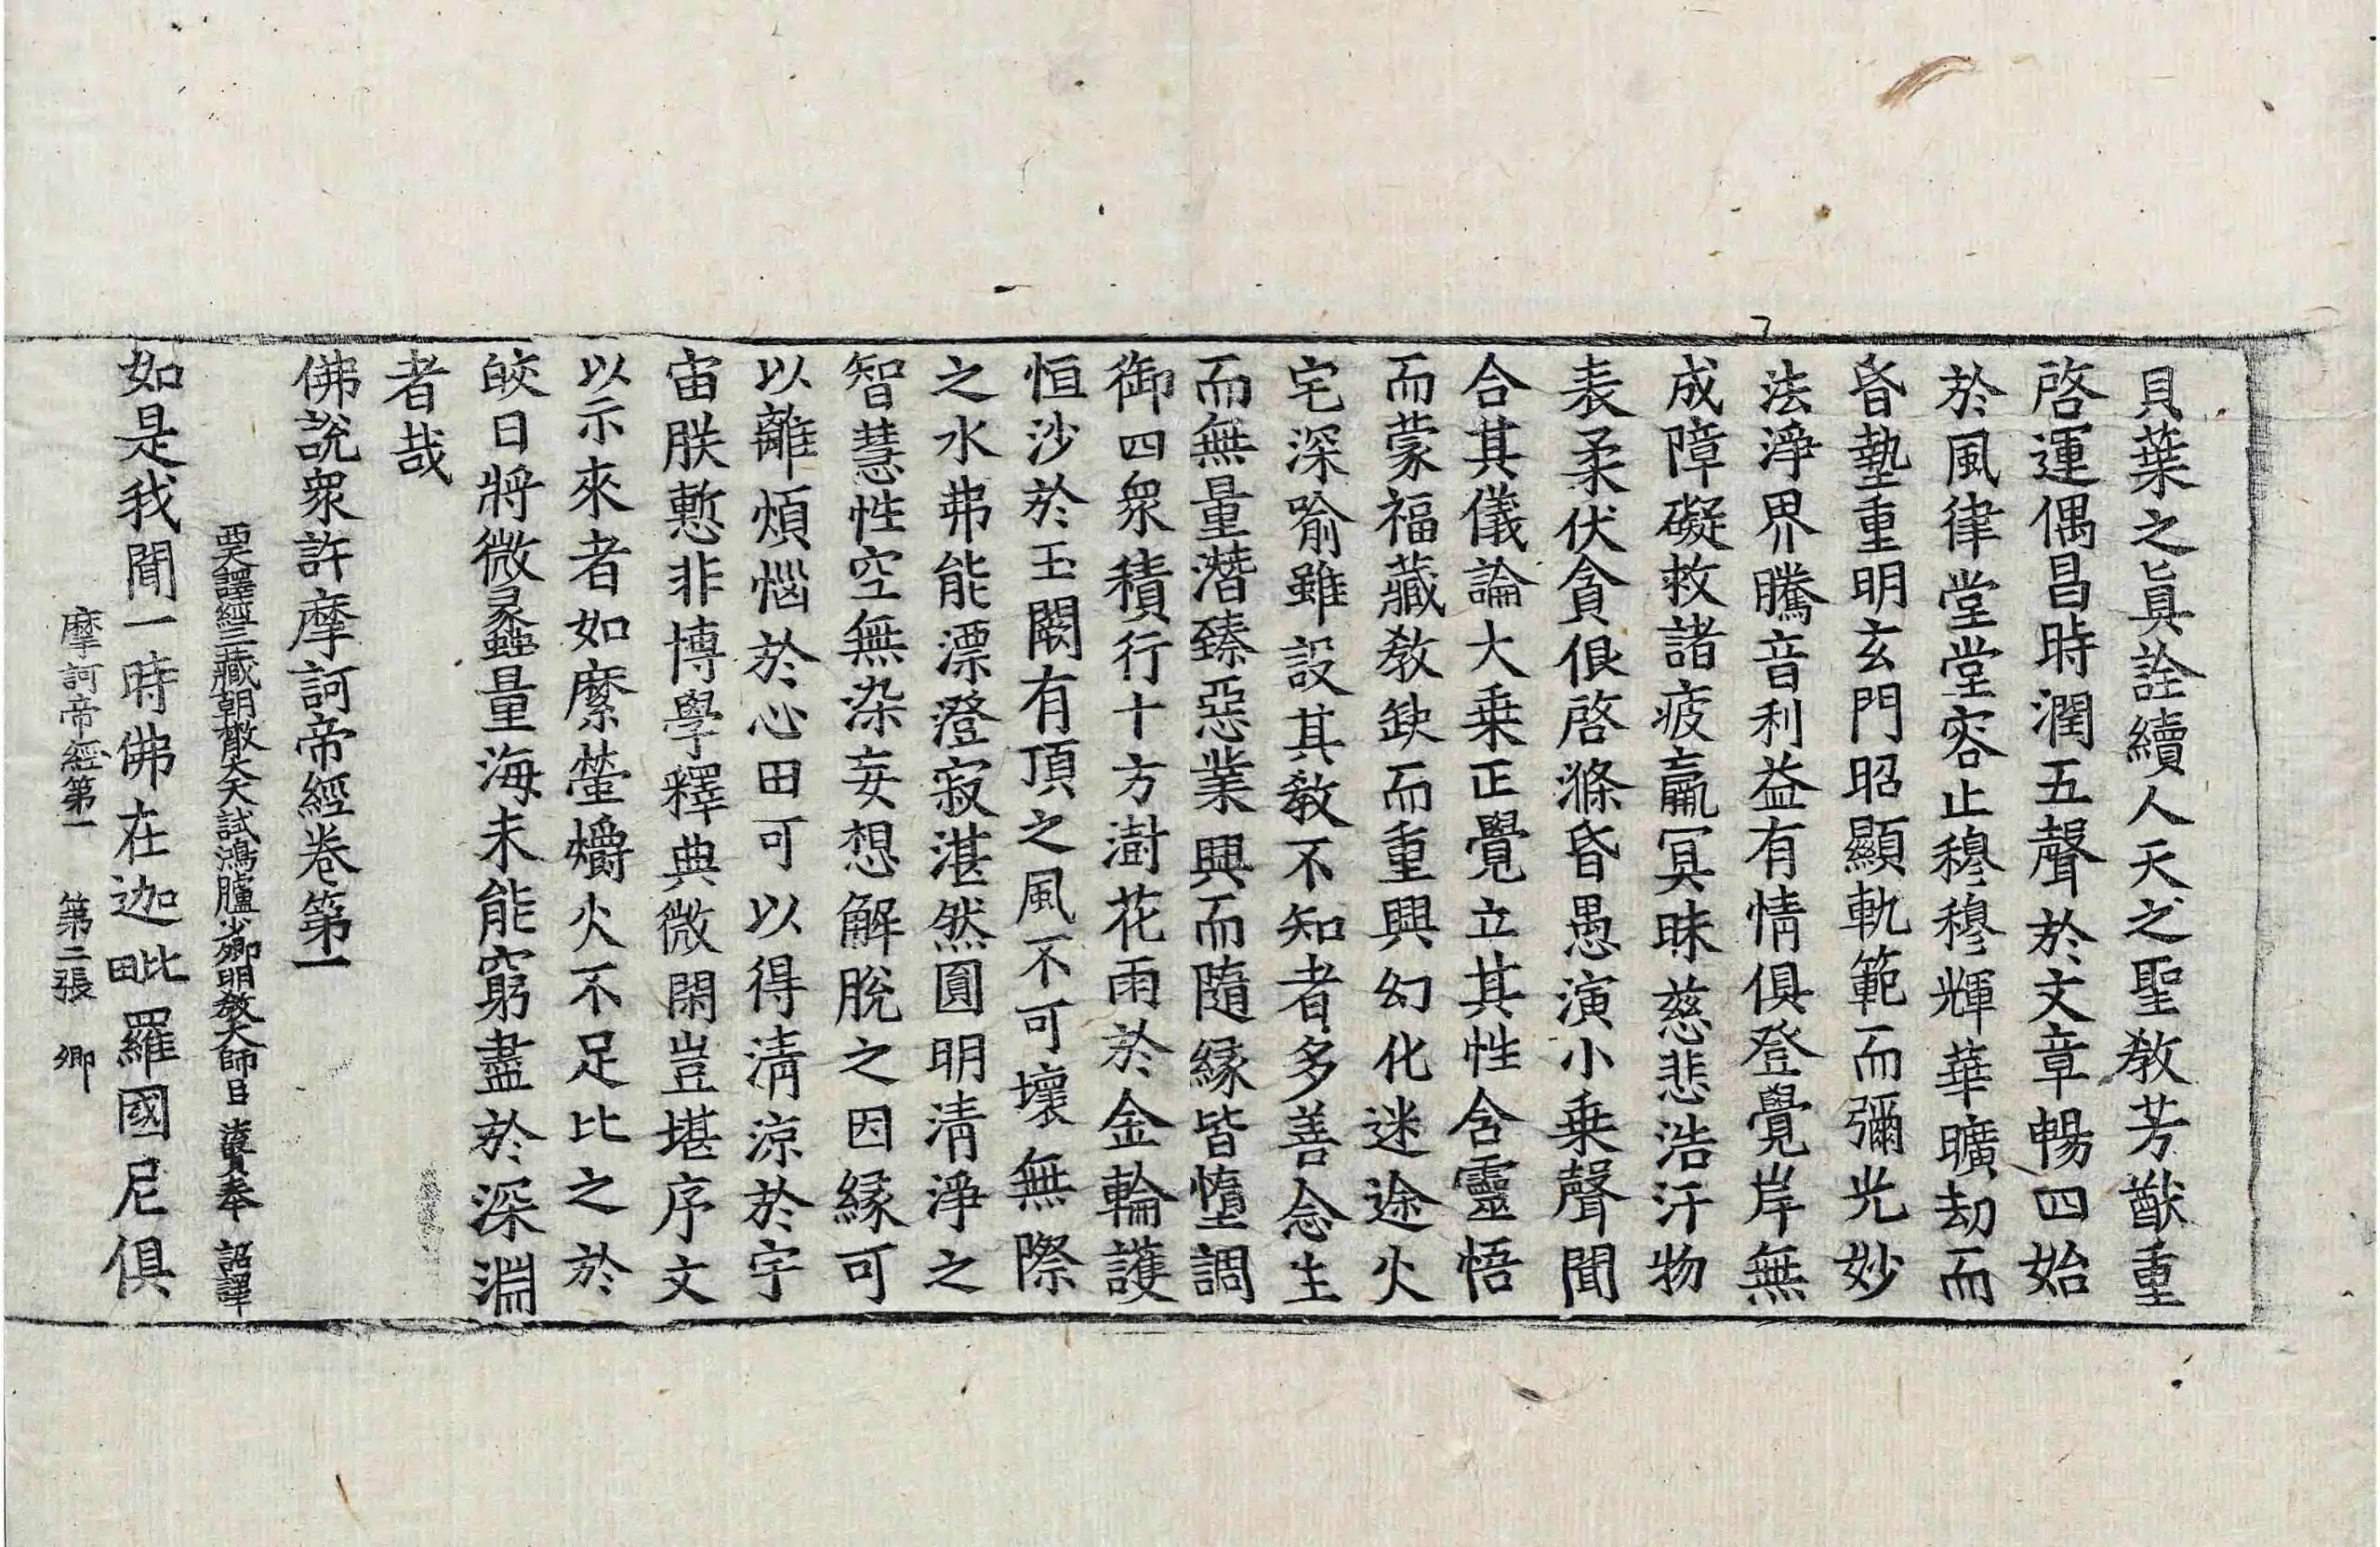 貝葉之眞詮續人天之聖教芳猷重
啓運偶昌時潤五聲於文章暢四始
於風律堂堂容止穆穆輝華曠劫而
昏墊重明玄門昭顯軌範而彌光妙
法淨界騰音利益有情俱登覺岸無
成障礙救諸疲羸冥昧慈悲浩汗物
表柔伏貪佷啓滌昏愚演小乗聲聞
合其儀論大乗正覺立其性含靈悟
而蒙福藏教缺而重興幻化迷途火
宅深喻雖設其教不知者多善念生
而無量潛臻惡業興而隨緣皆墮調
御四衆積行十方澍花雨於金輪護
恒沙於玉闕有頂之風不可壞無際
之水弗能漂澄寂湛然圓明清淨之
智慧性空無染妄想解脫之因緣可
以離煩惱於心田可以得清涼於宇
宙朕慙非博學釋典微閑豈堪序文
以示來者如縻螢爝火不足比之於
皎日將微蠡量海未能窮盡於深淵
者哉
佛說衆許摩訶帝經卷第一
西天譯經三藏朝散大夫試鴻臚少卿明教大師臣法賢奉 詔譯
如是我聞一時佛在迦毗羅國尼俱
摩訶帝經第一 第二張 卿